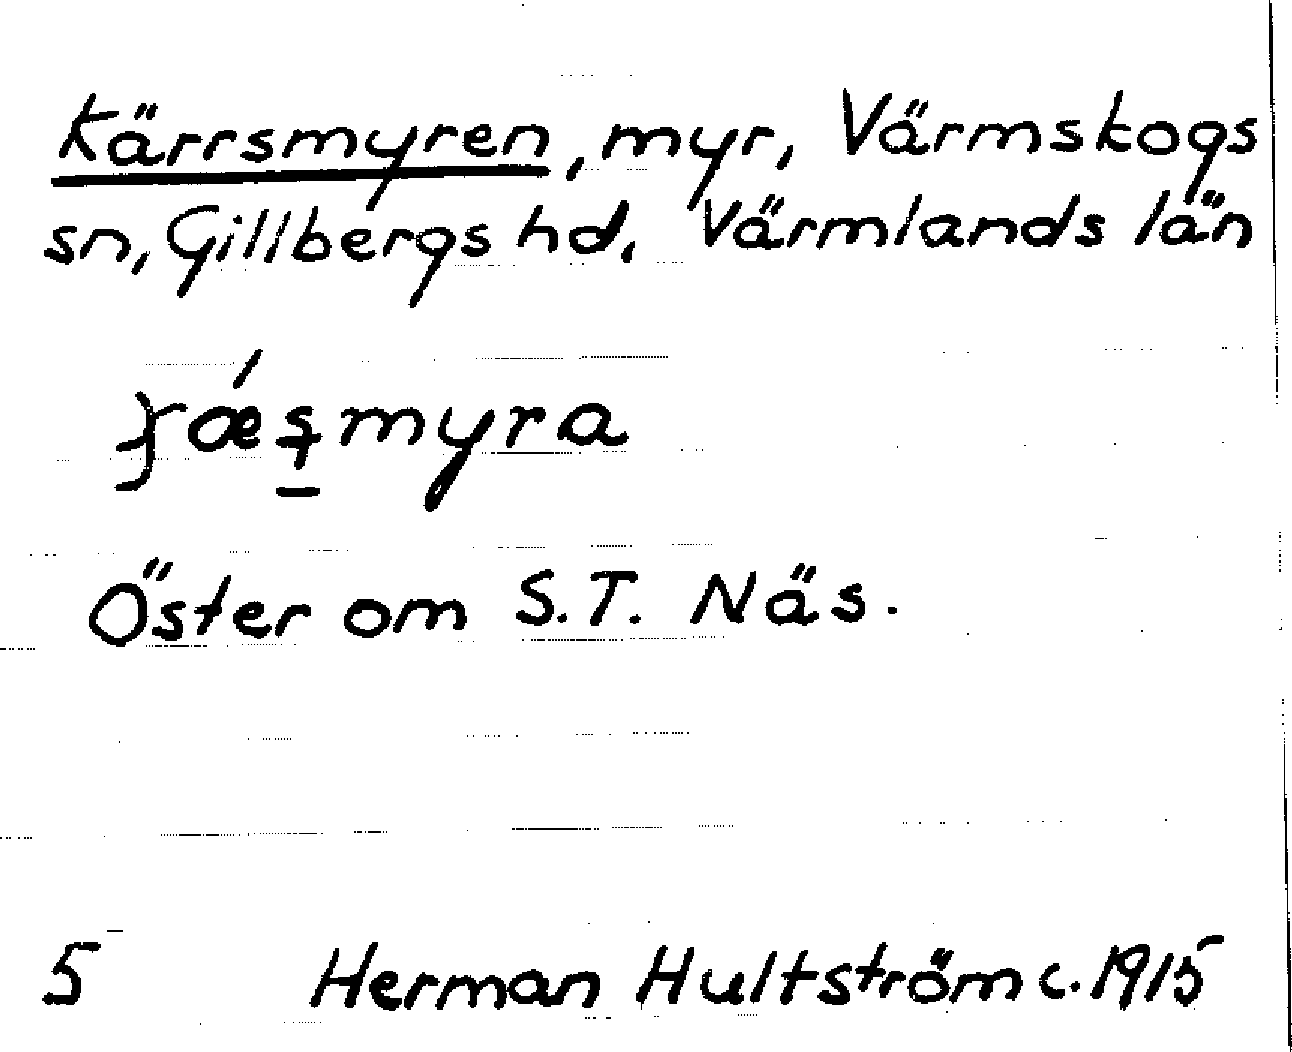 Kärrsmyren, myr, Värmskogs
sn, Gillbergs hd. Värmlands län
Öster om S.T. Näs.
5 Herman Hultström c. 1915